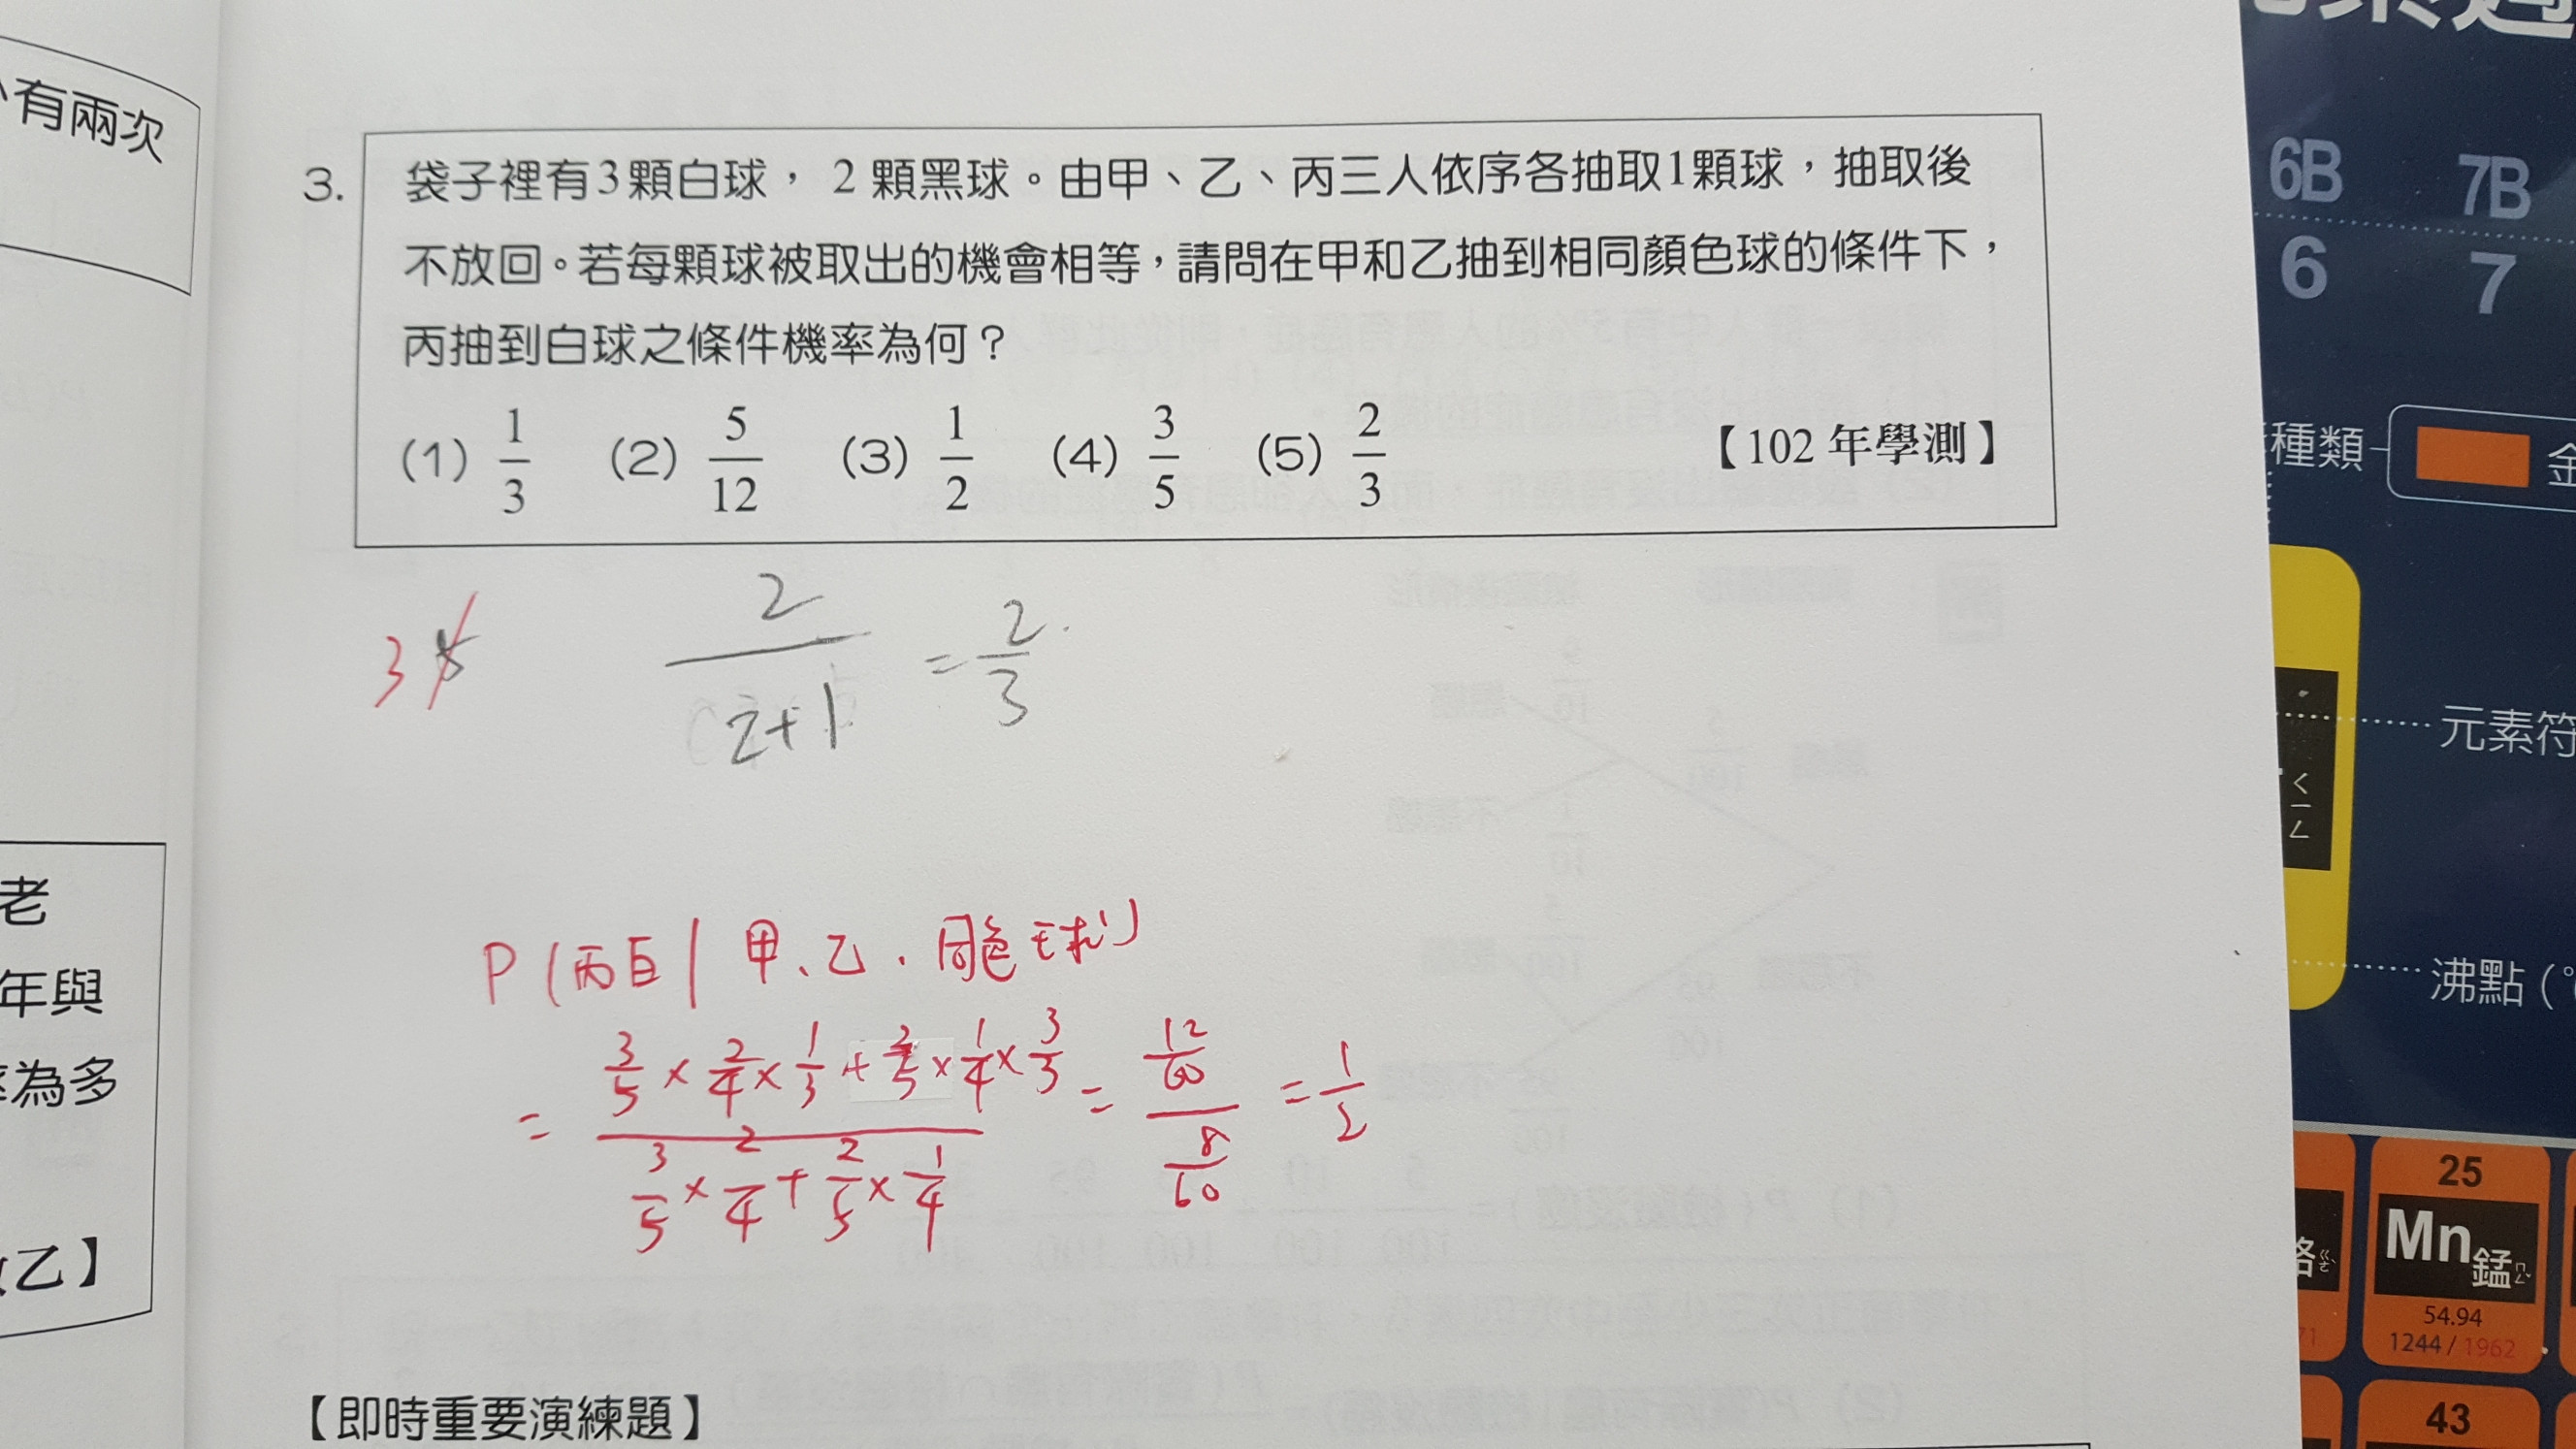 有兩次
老
年與
率為多
乙】
3. 袋子裡有3顆白球， 2 顆黑球。由甲、乙、丙三人依序各抽取1顆球，抽取後
不放回。若每顆球被取出的機會相等，請問在甲和乙抽到相同顏色球的條件下，
丙抽到白球之條件機率為何？
(1) 1/3 (2) 5/12 (3) 1/2 (4) 3/5 (5) 2/3 【102 年學測】
3
2/(2+1) = 2/3
P(丙白|甲、乙.同色球)
= (3/5 × 2/4 × 1/3 + 2/5 × 1/4 × 3/3)/(3/5 × 2/4 + 2/5 × 1/4) = (12/60)/(8/60) = 1/2
【即時重要演練題】
6B 7B
6 7
種類
金
元素符
ㄑㄧㄥ
沸點 (°
25
Mn 錳
54.94
1244 / 1962
43